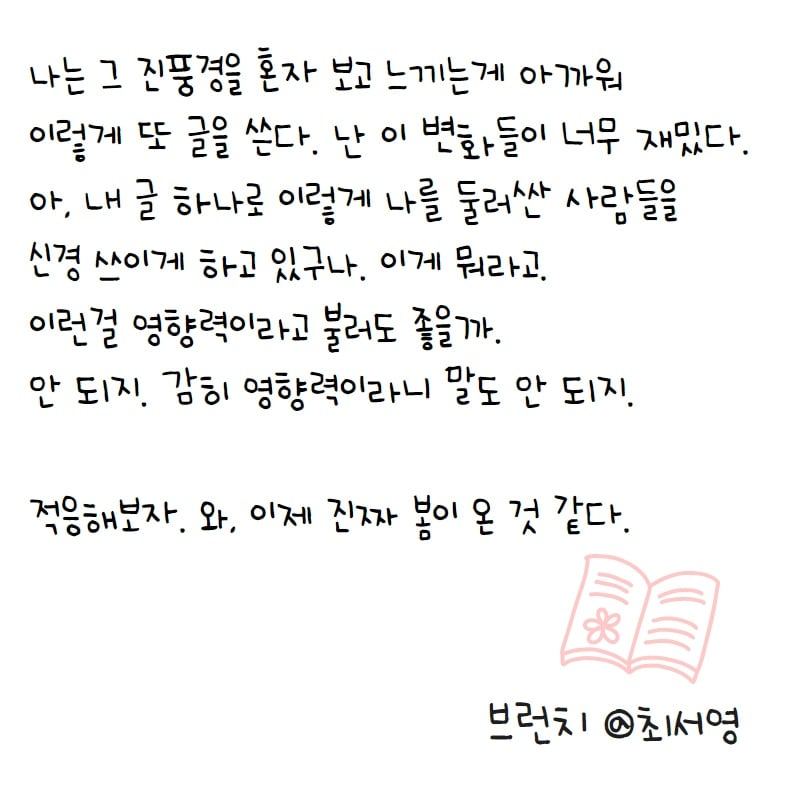 나는 그 진풍경을 혼자 보고 느끼는게 아까워
이렇게 또 글을 쓴다. 난 이 변화들이 너무 재밌다.
아, 내 글 하나로 이렇게 나를 둘러싼 사람들을
신경 쓰이게 하고 있구나. 이게 뭐라고.
이런걸 영향력이라고 불러도 좋을까.
안 되지. 감히 영향력이라니 말도 안 되지.
적응해보자. 와, 이제 진짜 봄이 온 것 같다.
브런치 @최서영